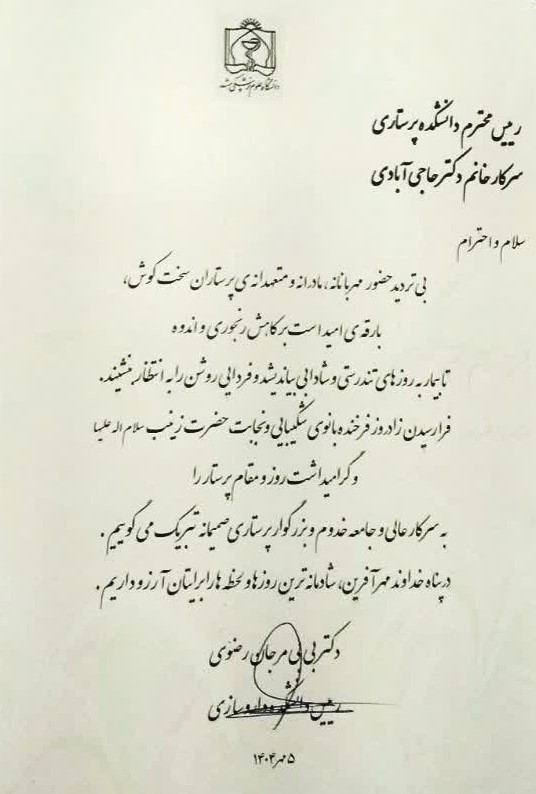 دانشگاه علوم پزشکی مشهد
رییس محترم دانشکده پرستاری
سرکار خانم دکتر حاجی آبادی
سلام و احترام
بی تردید حضور مهربانانه، مادرانه و متعهدانه‌ی پرستاران سخت کوش،
بارقه‌ی امید است بر کاهش رنجوری و اندوه
تا بیمار به روزهای تندرستی و شادابی بیاندیشد و فردایی روشن را به انتظار بنشیند.
فرا رسیدن زادروز فرخنده بانوی شکیبایی و نجابت حضرت زینب سلام اله علیها
و گرامیداشت روز و مقام پرستار را
به سرکار عالی و جامعه خدوم و بزرگوار پرستاری صمیمانه تبریک می گوییم.
در پناه خداوند مهرآفرین، شادمانه ترین روزها و لحظه ها را برایتان آرزو داریم.
دکتر بی بی مرجان رضوی
رییس دانشکده داروسازی
۵ مهر ۱۴۰۴